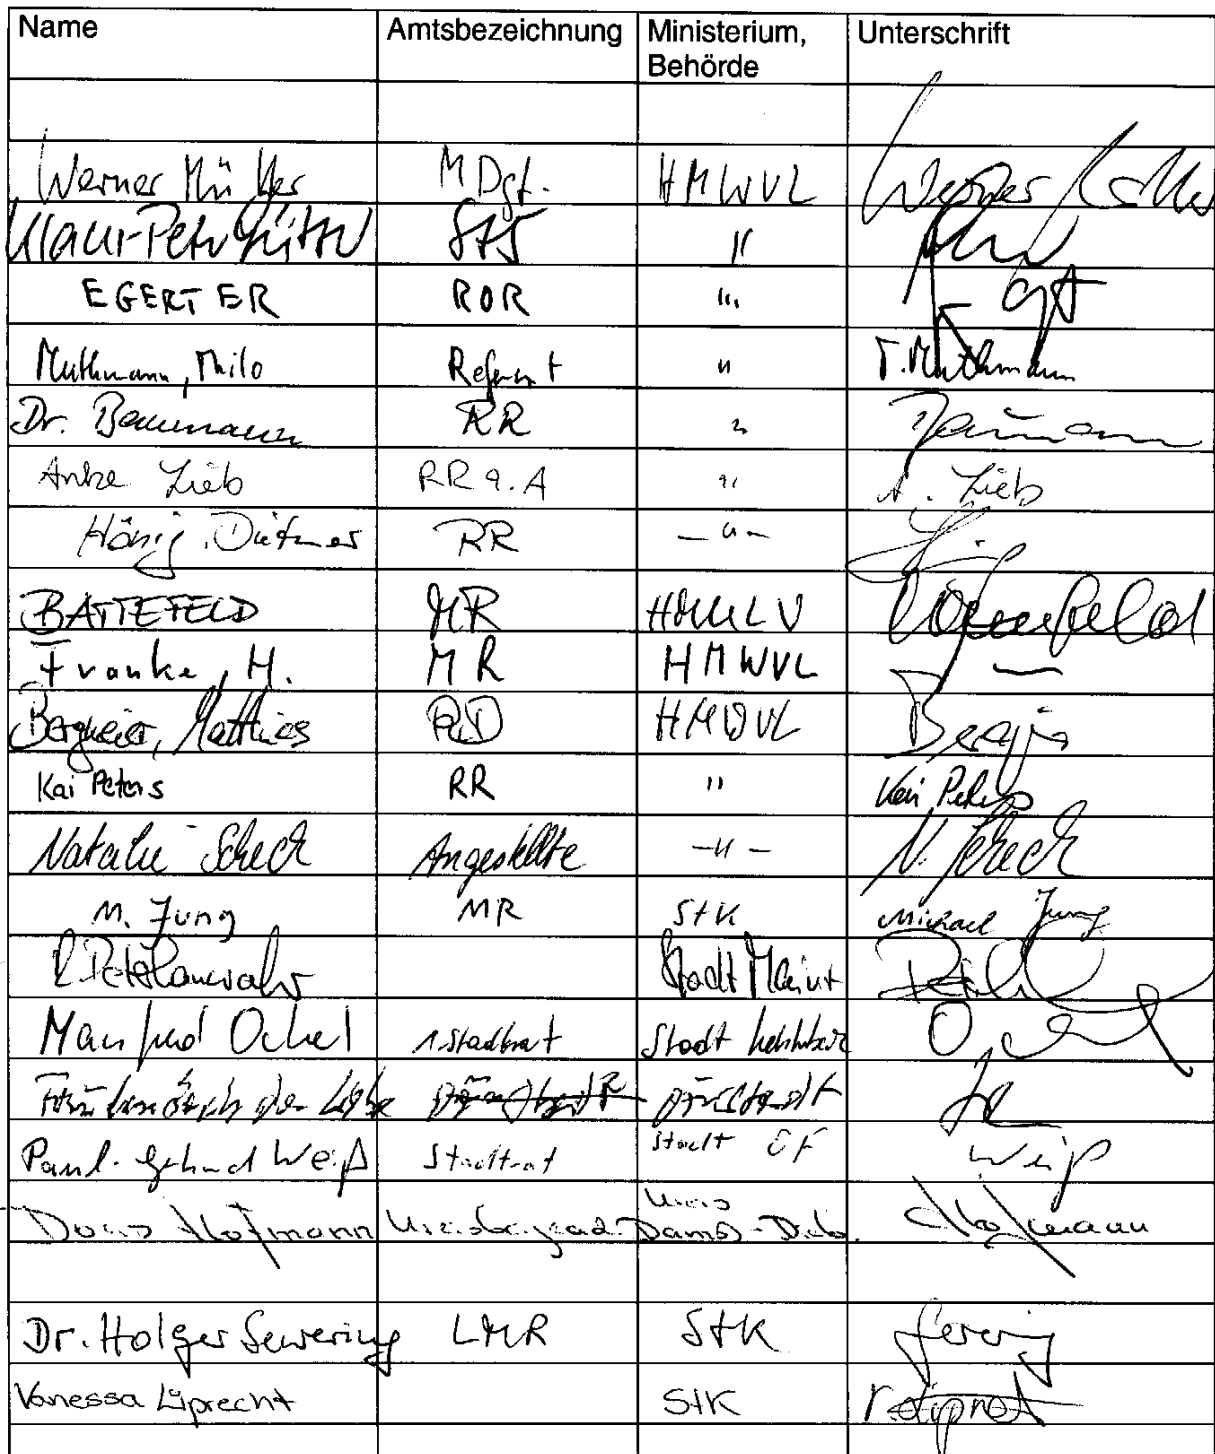 Name Amtsbezeichnung Ministerium, Behörde Unterschrift
Werner Müller MDgt. HMWVL Werner Müller
Klaus-Peter StS "
EGERTER ROR "
Muthmann, Thilo Referent " T. Muthmann
Dr. Baumann RR " Baumann
Anke Lieb RR z.A " A. Lieb
Hönig, Dietmar RR - " -
BATTEFELD MR HMULV Battefeld
Franke, H. MR HMWVL
Bergmeier, Matthias RD HMWVL
Kai Peters RR " Kai Peters
Natalie Scheck Angestellte - " - N. Scheck
M. Jung MR StK Michael Jung
Stadt Mainz
Manfred Ockel 1. Stadtrat Stadt Ockel
Paul-Gerhard Weiß Stadtrat Stadt OF Weiß
Doris Hofmann Kreisbeigeord. Kreis Darmst.-Dieb. Hofmann
Dr. Holger Sewering LMR StK
Vanessa Liprecht StK